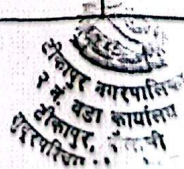 टीकापुर नगरपालिका
१ नं. वडा कार्यालय
टीकापुर, कैलाली